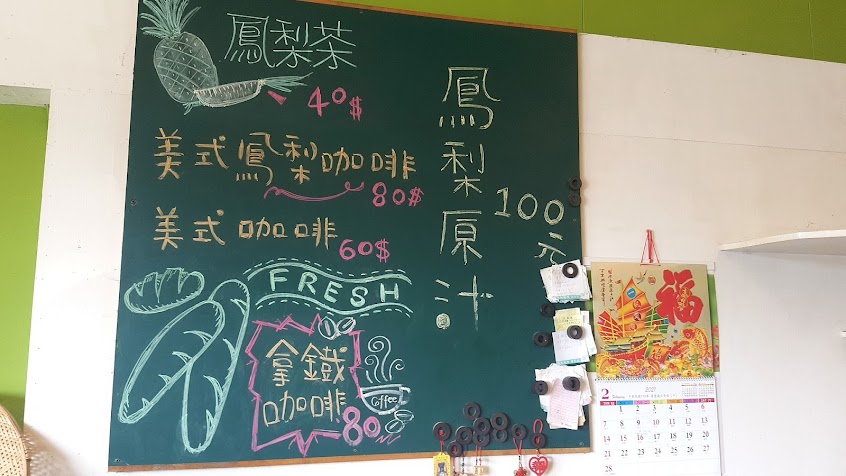 鳳梨茶
40$
美式鳳梨咖啡
80$
美式咖啡
60$
FRESH
拿鐵
咖啡
80
Coffee
鳳梨原汁
100
元
福
2
1 2 3 4 5 6
7 8 9 10 11 12 13
14 15 16 17 18 19 20
21 22 23 24 25 26 27
28